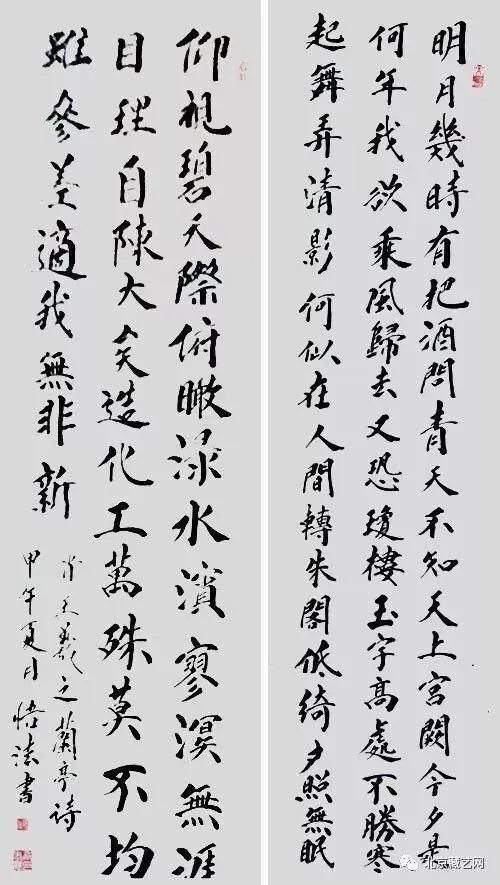 明月幾時有把酒問青天不知天上宮闕今夕是
何年我欲乘風歸去又恐瓊樓玉宇高處不勝寒
起舞弄清影何似在人間轉朱閣低綺戶照無眠
仰視碧天際俯瞰淥水濱寥溟無涯
目理自陳大矣造化工萬殊莫不均
雖參差適我無非新
王羲之蘭亭詩
甲午夏月悟法書
北京藏艺网